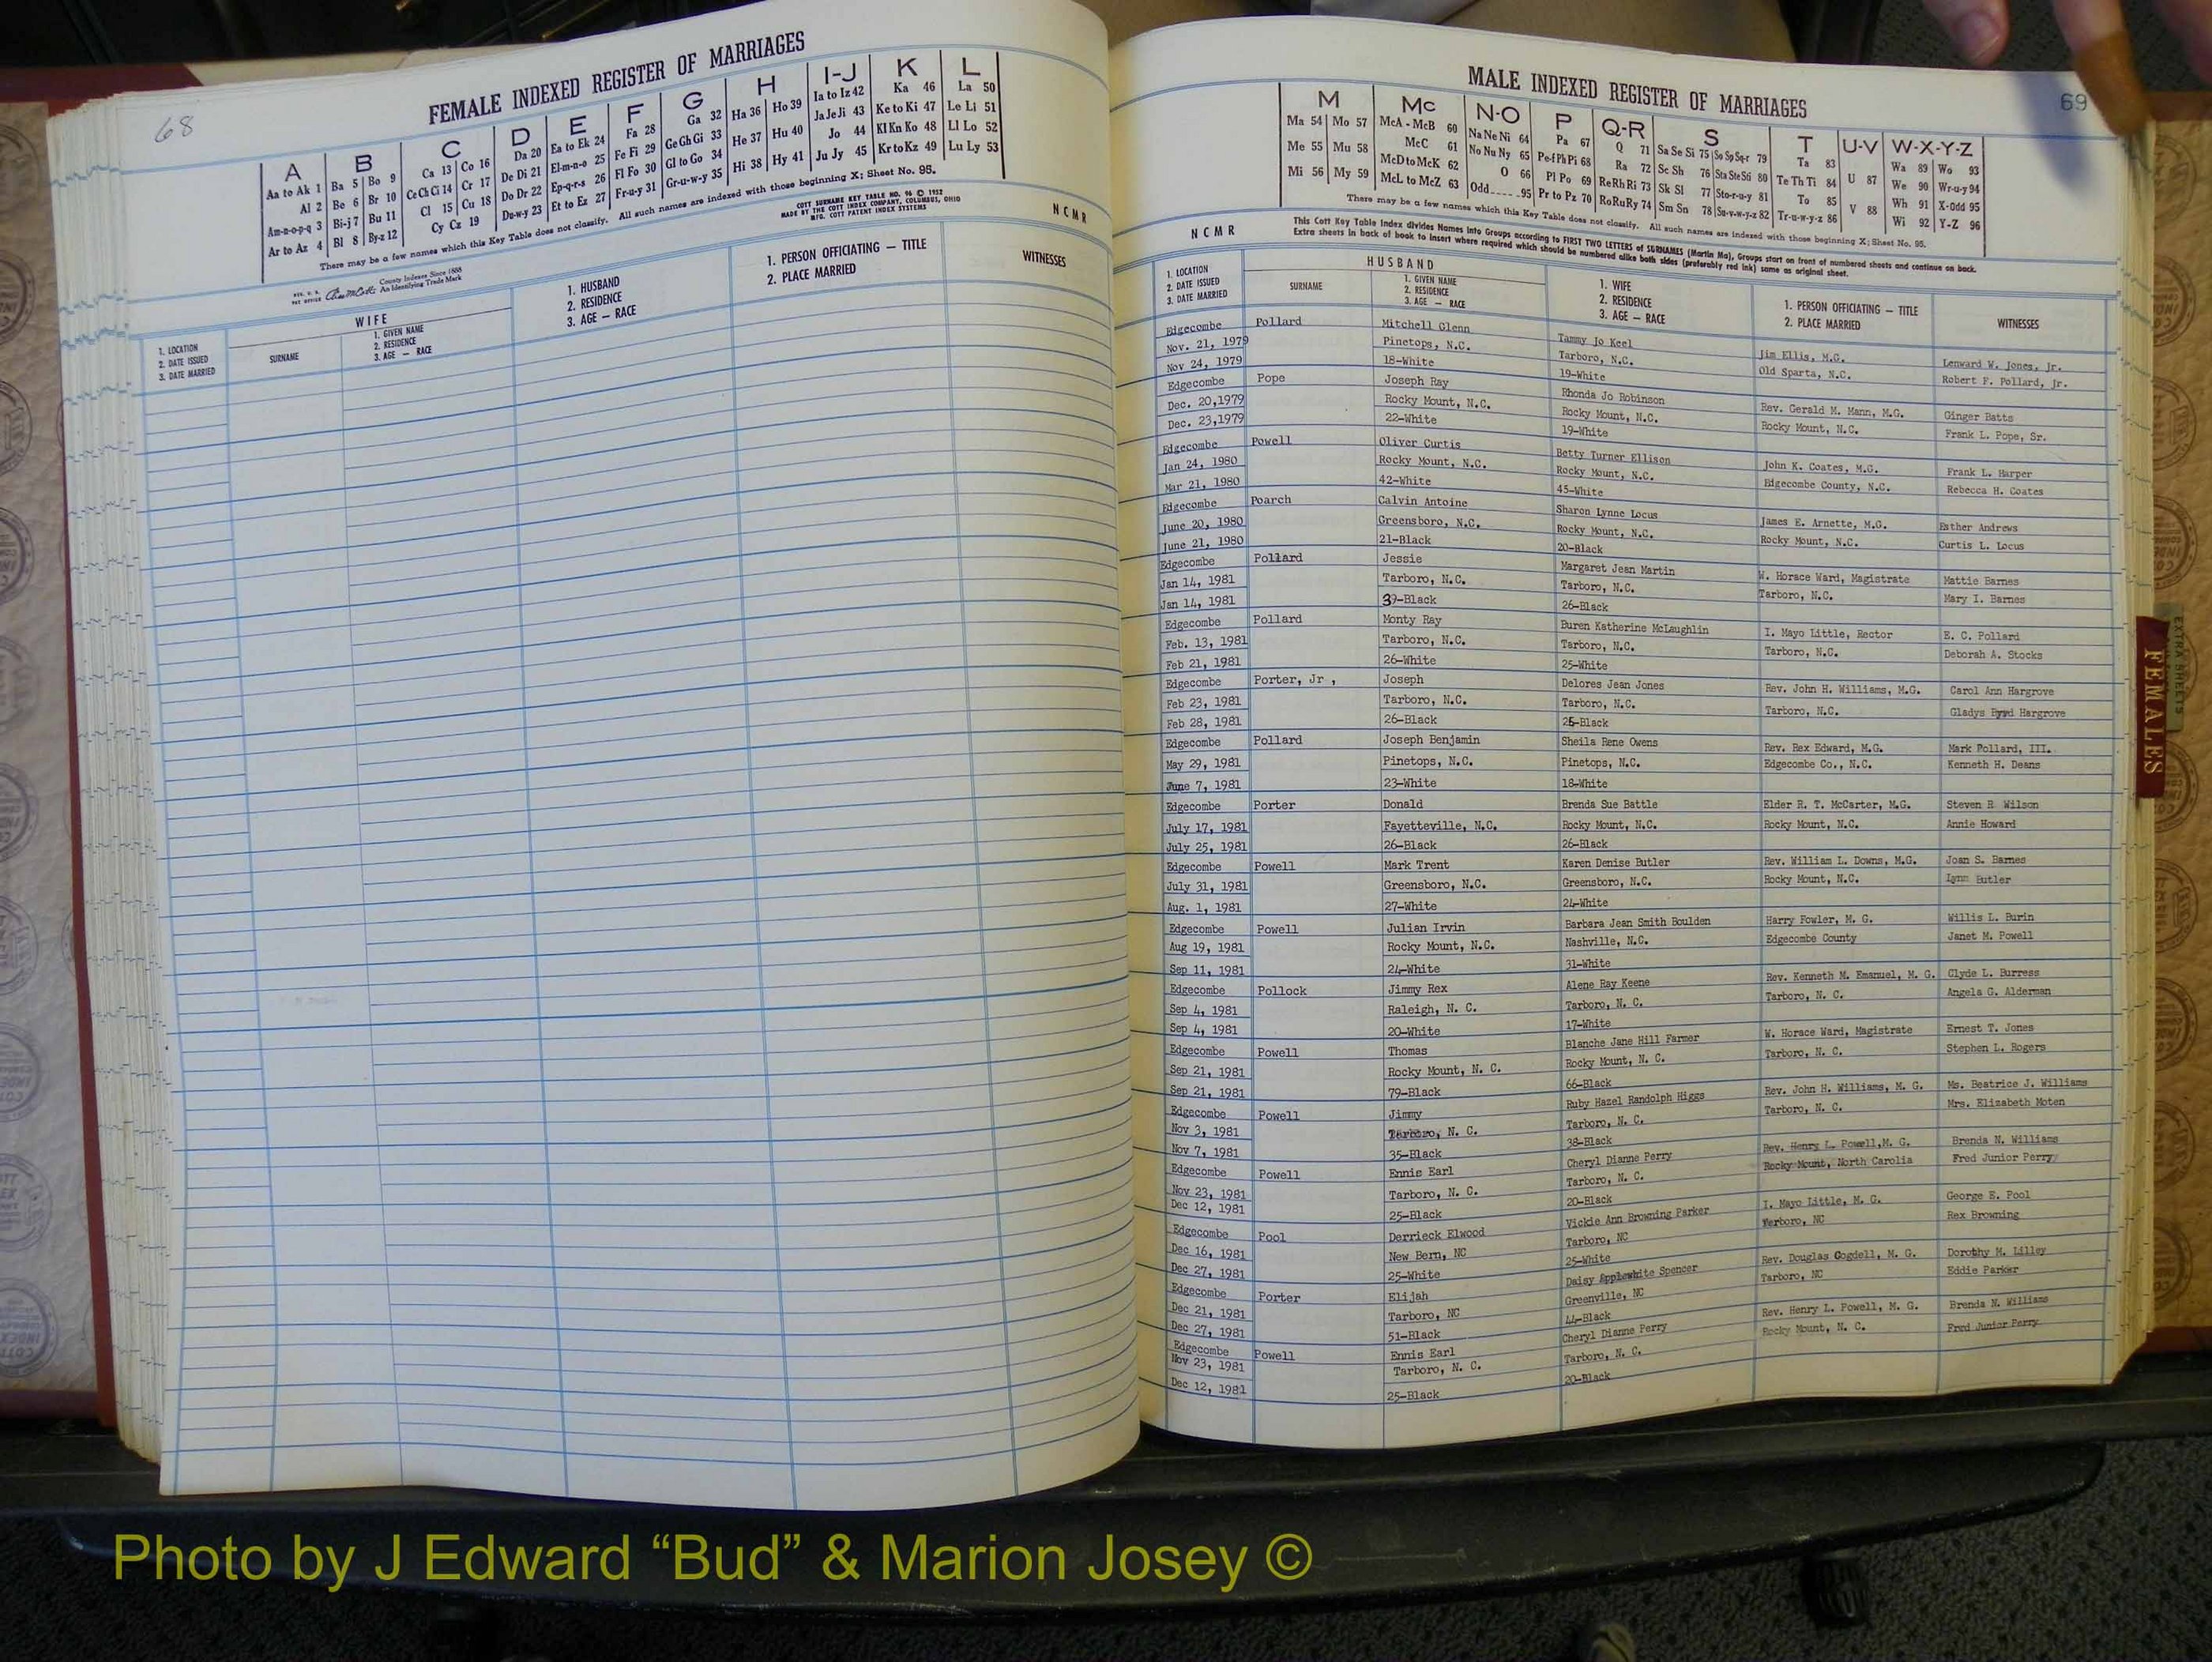 68
FEMALE INDEXED REGISTER OF MARRIAGES
A B C D E F G H I-J K L
Aa to Ak 1 Ba 5 Bo 9 Ca 13 Co 16 Da 20 Ea to Ek 24 Fa 28 Ga 32 Ha 36 Ho 39 Ia to Iz 42 Ka 46 La 50
Al 2 Be 6 Br 10 Ce Ch Ci 14 Cr 17 De Di 21 El-m-n-o 25 Fe Fi 29 Ge Gh Gi 33 He 37 Hu 40 Ja Je Ji 43 Ke to Ki 47 Le Li 51
Am-n-o-p-q 3 Bi-j 7 Bu 11 Cl 15 Cu 18 Do Dr 22 Ep-q-r-s 26 Fl Fo 30 Gl to Go 34 Hi 38 Hy 41 Jo 44 Kl Kn Ko 48 Ll Lo 52
Ar to Az 4 Bl 8 By-z 12 Cy Cz 19 Du-w-y 23 Et to Ez 27 Fr-u-y 31 Gr-u-w-y 35 Ju Jy 45 Kr to Kz 49 Lu Ly 53
There may be a few names which this Key Table does not classify. All such names are indexed with those beginning X; Sheet No. 95.
COTT SURNAME KEY TABLE NO. 96 © 1952
MADE BY THE COTT INDEX COMPANY, COLUMBUS, OHIO
MFG. COTT PATENT INDEX SYSTEMS
County Indexes Since 1888
An Identifying Trade Mark
NCMR
1. LOCATION
2. DATE ISSUED
3. DATE MARRIED
WIFE
SURNAME
1. GIVEN NAME
2. RESIDENCE
3. AGE — RACE
1. HUSBAND
2. RESIDENCE
3. AGE — RACE
1. PERSON OFFICIATING — TITLE
2. PLACE MARRIED
WITNESSES
69
MALE INDEXED REGISTER OF MARRIAGES
M Mc N-O P Q-R S T U-V W-X-Y-Z
Ma 54 Mo 57 McA - McB 60 Na Ne Ni 64 Pa 67 Q 71 Sa Se Si 75 So Sp Sq-r 79 Ta 83 U 87 Wa 89 Wo 93
Me 55 Mu 58 McC 61 No Nu Ny 65 Pe-f Ph Pi 68 Ra 72 Sc Sh 76 Sta Ste Sti 80 Te Th Ti 84 V 88 We 90 Wr-u-y 94
Mi 56 My 59 McD to McK 62 O 66 Pl Po 69 Re Rh Ri 73 Sk Sl 77 Sto-r-u-y 81 To 85 Wh 91 X-Odd 95
McL to McZ 63 Odd 95 Pr to Pz 70 Ro Ru Ry 74 Sm Sn 78 Su-v-w-y-z 82 Tr-u-w-y-z 86 Wi 92 Y-Z 96
There may be a few names which this Key Table does not classify. All such names are indexed with those beginning X; Sheet No. 95.
NCMR
This Cott Key Table Index divides Names into Groups according to FIRST TWO LETTERS of SURNAMES (Martin Ma), Groups start on front of numbered sheets and continue on back.
Extra sheets in back of book to insert where required which should be numbered alike both sides (preferably red ink) same as original sheet.
1. LOCATION
2. DATE ISSUED
3. DATE MARRIED
HUSBAND
SURNAME
1. GIVEN NAME
2. RESIDENCE
3. AGE — RACE
1. WIFE
2. RESIDENCE
3. AGE — RACE
1. PERSON OFFICIATING — TITLE
2. PLACE MARRIED
WITNESSES
Edgecombe Pollard Mitchell Glenn Tammy Jo Keel Jim Ellis, M.G. Lenward W. Jones, Jr.
Nov. 21, 1979 Pinetops, N.C. Tarboro, N.C. Old Sparta, N.C. Robert F. Pollard, Jr.
Nov 24, 1979 18-White 19-White
Edgecombe Pope Joseph Ray Rhonda Jo Robinson Rev. Gerald M. Mann, M.G. Ginger Batts
Dec. 20,1979 Rocky Mount, N.C. Rocky Mount, N.C. Rocky Mount, N.C. Frank L. Pope, Sr.
Dec. 23,1979 22-White 19-White
Edgecombe Powell Oliver Curtis Betty Turner Ellison John K. Coates, M.G. Frank L. Harper
Jan 24, 1980 Rocky Mount, N.C. Rocky Mount, N.C. Edgecombe County, N.C. Rebecca H. Coates
Mar 21, 1980 42-White 45-White
Edgecombe Poarch Calvin Antoine Sharon Lynne Locus James E. Arnette, M.G. Esther Andrews
June 20, 1980 Greensboro, N.C. Rocky Mount, N.C. Rocky Mount, N.C. Curtis L. Locus
June 21, 1980 21-Black 20-Black
Edgecombe Pollard Jessie Margaret Jean Martin W. Horace Ward, Magistrate Mattie Barnes
Jan 14, 1981 Tarboro, N.C. Tarboro, N.C. Tarboro, N.C. Mary I. Barnes
Jan 14, 1981 39-Black 26-Black
Edgecombe Pollard Monty Ray Buren Katherine McLaughlin I. Mayo Little, Rector E. C. Pollard
Feb. 13, 1981 Tarboro, N.C. Tarboro, N.C. Tarboro, N.C. Deborah A. Stocks
Feb 21, 1981 26-White 25-White
Edgecombe Porter, Jr , Joseph Delores Jean Jones Rev. John H. Williams, M.G. Carol Ann Hargrove
Feb 23, 1981 Tarboro, N.C. Tarboro, N.C. Tarboro, N.C. Gladys Byrd Hargrove
Feb 28, 1981 26-Black 25-Black
Edgecombe Pollard Joseph Benjamin Sheila Rene Owens Rev. Rex Edward, M.G. Mark Pollard, III.
May 29, 1981 Pinetops, N.C. Pinetops, N.C. Edgecombe Co., N.C. Kenneth H. Deans
June 7, 1981 23-White 18-White
Edgecombe Porter Donald Brenda Sue Battle Elder R. T. McCarter, M.G. Steven R Wilson
July 17, 1981 Fayetteville, N.C. Rocky Mount, N.C. Rocky Mount, N.C. Annie Howard
July 25, 1981 26-Black 26-Black
Edgecombe Powell Mark Trent Karen Denise Butler Rev. William L. Downs, M.G. Joan S. Barnes
July 31, 1981 Greensboro, N.C. Greensboro, N.C. Rocky Mount, N.C. Lynn Butler
Aug. 1, 1981 27-White 24-White
Edgecombe Powell Julian Irvin Barbara Jean Smith Boulden Harry Fowler, M. G. Willis L. Burin
Aug 19, 1981 Rocky Mount, N.C. Nashville, N.C. Edgecombe County Janet M. Powell
Sep 11, 1981 24-White 31-White
Edgecombe Pollock Jimmy Rex Alene Ray Keene Rev. Kenneth M. Emanuel, M. G. Clyde L. Burress
Sep 4, 1981 Raleigh, N. C. Tarboro, N. C. Tarboro, N. C. Angela G. Alderman
Sep 4, 1981 20-White 17-White
Edgecombe Powell Thomas Blanche Jane Hill Farmer W. Horace Ward, Magistrate Ernest T. Jones
Sep 21, 1981 Rocky Mount, N. C. Rocky Mount, N. C. Tarboro, N. C. Stephen L. Rogers
Sep 21, 1981 79-Black 66-Black
Edgecombe Powell Jimmy Ruby Hazel Randolph Higgs Rev. John H. Williams, M. G. Ms. Beatrice J. Williams
Nov 3, 1981 Tarboro, N. C. Tarboro, N. C. Tarboro, N. C. Mrs. Elizabeth Moten
Nov 7, 1981 35-Black 38-Black
Edgecombe Powell Ennis Earl Cheryl Dianne Perry Rev. Henry L. Powell,M. G. Brenda N. Williams
Nov 23, 1981 Tarboro, N. C. Tarboro, N. C. Rocky Mount, North Carolia Fred Junior Perry
Dec 12, 1981 25-Black 20-Black
Edgecombe Pool Derrieck Elwood Vickie Ann Browning Parker I. Mayo Little, M. G. George E. Pool
Dec 16, 1981 New Bern, NC Tarboro, NC Terboro, NC Rex Browning
Dec 27, 1981 25-White 25-White
Edgecombe Porter Elijah Daisy Applewhite Spencer Rev. Douglas Cogdell, M. G. Dorothy M. Lilley
Dec 21, 1981 Tarboro, NC Greenville, NC Tarboro, NC Eddie Parker
Dec 27, 1981 51-Black 44-Black
Edgecombe Powell Ennis Earl Cheryl Dianne Perry Rev. Henry L. Powell, M. G. Brenda N. Williams
Nov 23, 1981 Tarboro, N. C. Tarboro, N. C. Rocky Mount, N. C. Fred Junior Perry
Dec 12, 1981 25-Black 20-Black
EXTRA SHEETS
FEMALES
Photo by J Edward “Bud” & Marion Josey ©